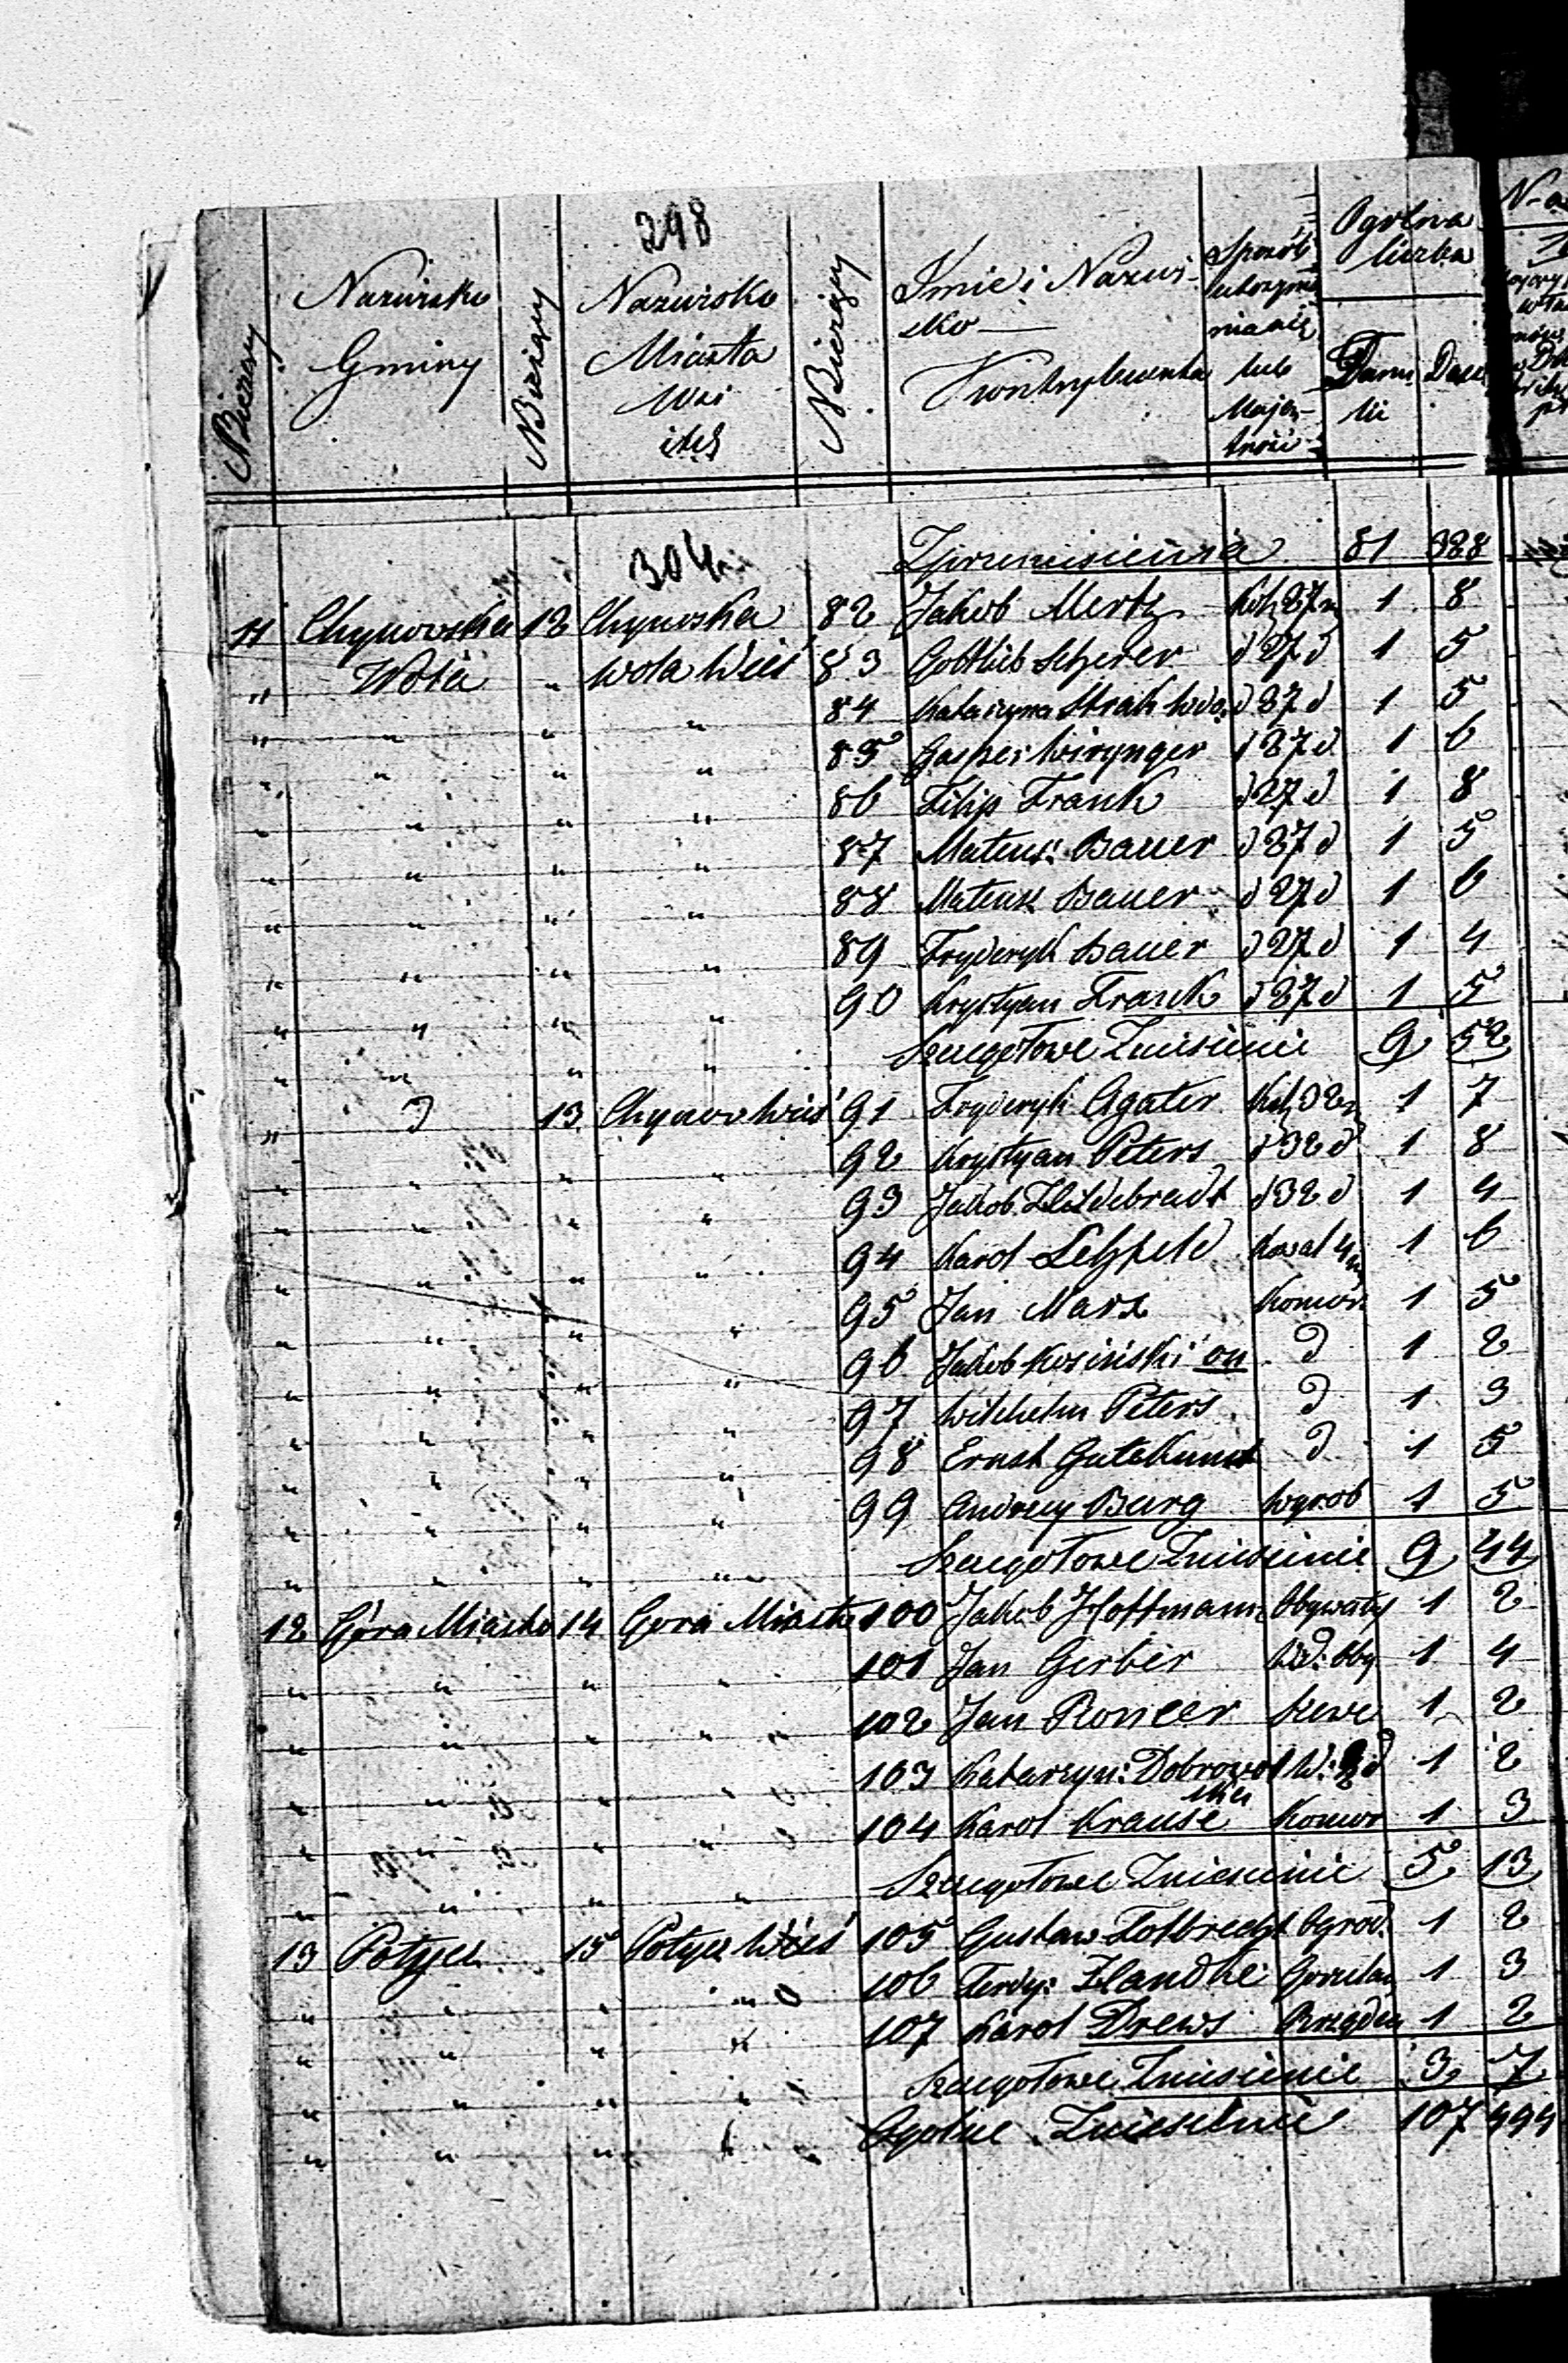 298
N Bieżący
Nazwisko Gminy
N Bieżący
Nazwisko Miasta Wsi itd
N Bieżący
Imie i Nazwisko Kontrybuenta
Sposób lub Majętności
Ogólna liczba
Familii Dusz
304
Z przeniesienia 81 388
11 Chynowska 12 Chynoska 82 Jakob Mertz Kol 27 m 1 8
" Wola " Wola Wieś 83 Gottlieb Scherer d 27 d 1 5
" " " 84 Katarzyna Strak Wdo. d 27 d 1 5
" " " " 85 Gasper Wirynger d 27 d 1 6
" " " " 86 Filip Frank d 27 d 1 8
" " " " 87 Mateusz Bauer d 27 d 1 5
" " " " 88 Mateusz Bauer d 27 d 1 6
" " " " 89 Fryderyk Bauer d 27 d 1 4
" " " " 90 Krystyan Frank d 27 d 1 5
" " " " Szczegołowe Zniesienie 9 52
" d 13 Chynow Wieś 91 Fryderyk Agater Kol 32 m 1 7
" " " " 92 Krystyan Peters d 32 d 1 8
" " " " 93 Jakob Hildebradt d 32 d 1 4
" " " " 94 Karol Kowal 4 m 1 6
" " " " 95 Jan Marx Komor 1 5
" " " " 96 Jakob Kosiński on d 1 2
" " " " 97 Wilhelm Peters d 1 3
" " " " 98 Ernst Gutekunst d 1 5
" " " " 99 Andrzey Burg Wyrob 1 5
" " " " Szczegołowe Zniesienie 9 44
12 Góra Miasto 14 Gora Miasto 100 Jakob Hoffmann Obywatel 1 2
" " " " 101 Jan Gerber Wd: Oby 1 4
" " " " 102 Jan Roncer Szewc 1 2
" " " " 103 Katarzyn: Dobrowolska 1 2
" " " " 104 Karol Krause Komor 1 3
" " " " Szczegołowe Zniesienie 5 13
13 Potycz 15 Potycz Wieś 105 Gustaw Folbrecht Ogrod. 1 2
" " " " 106 Ferdy: Handke Gorzelan 1 3
" " " " 107 Karol Drews Rzządca 1 2
" " " " Szczegołowe Zniesienie 3 7
" " " " Ogolne Zniesienie 107 494